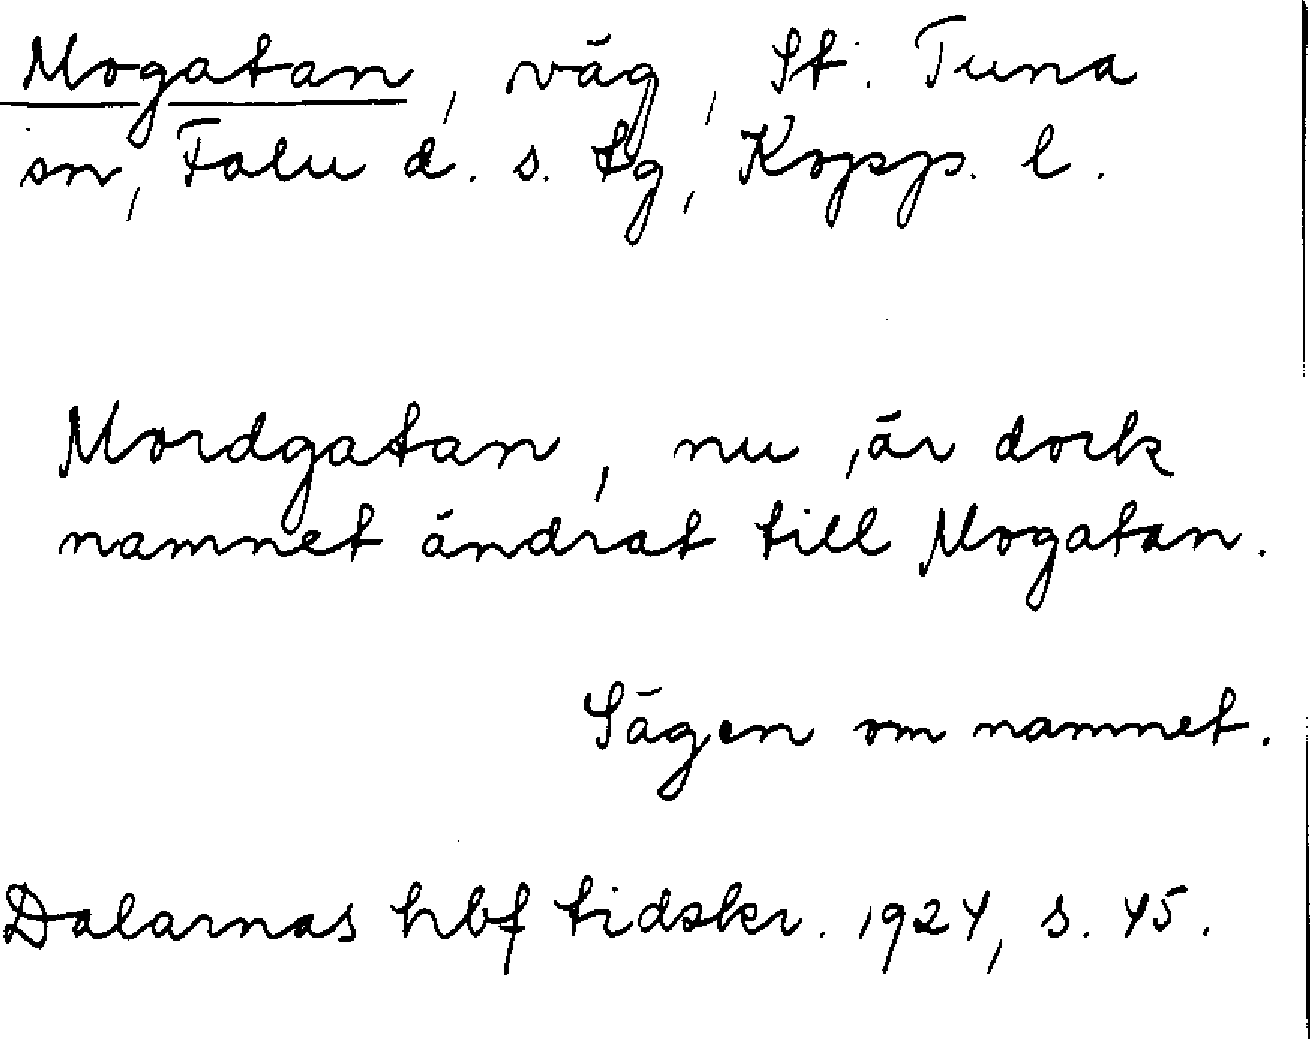 Mogatan, väg, St. Tuna
sn, Falu d. s. tg, Kopp. l.
Mordgatan, nu är dock
namnet ändrat till Mogatan.
Sägen om namnet.
Dalarnas hbf tidskr. 1924, s. 45.